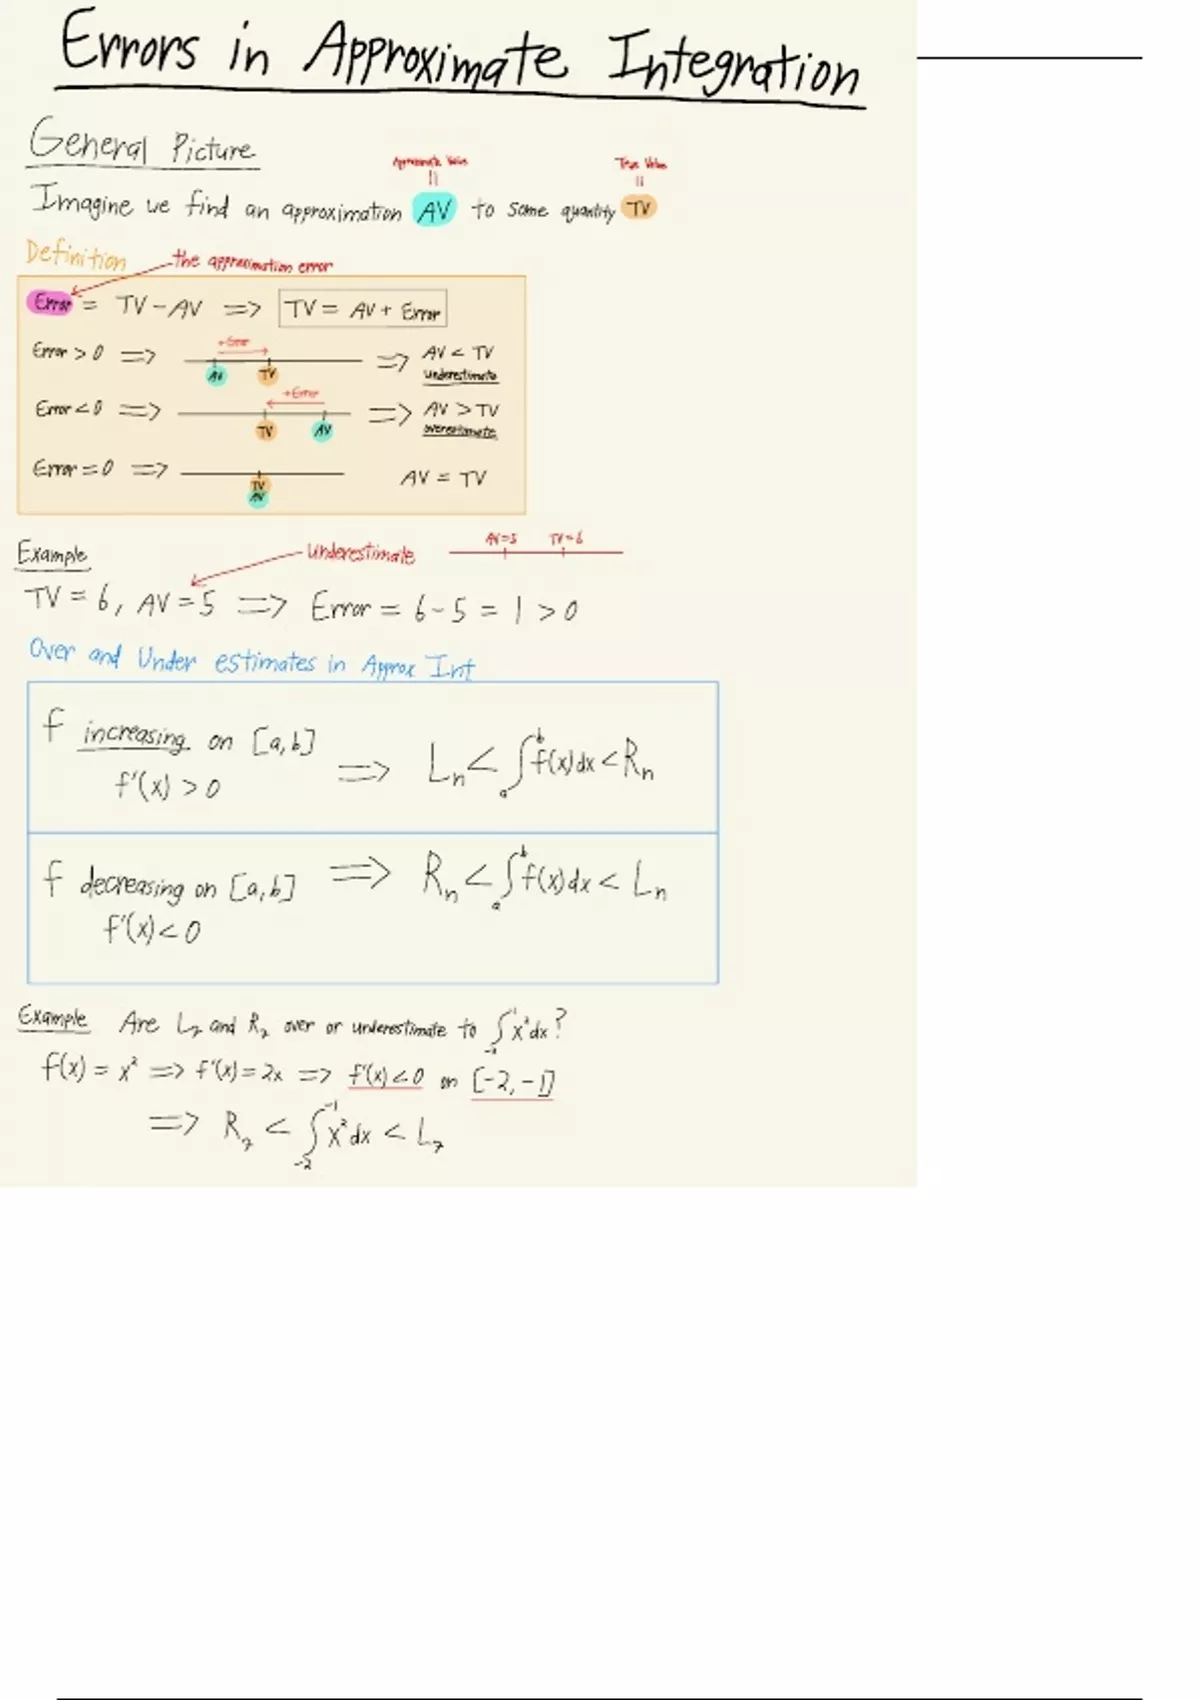 Errors in Approximate Integration
General Picture
Approximate Value
True Value
Imagine we find an approximation AV to some quantity TV
Definition
the approximation error
Error = TV - AV => TV = AV + Error
Error > 0 => +Error AV TV => AV < TV
underestimate
Error < 0 => +Error TV AV => AV > TV
overestimate
Error = 0 => TV AV AV = TV
Example
Underestimate
AV=5 TV=6
TV = 6, AV = 5 => Error = 6 - 5 = 1 > 0
Over and Under estimates in Approx Int
f increasing on [a,b] => Lₙ < ∫ₐᵇ f(x)dx < Rₙ
f'(x) > 0
f decreasing on [a,b] => Rₙ < ∫ₐᵇ f(x)dx < Lₙ
f'(x) < 0
Example Are L₇ and R₇ over or underestimate to ∫₋₂⁻¹ x²dx?
f(x) = x² => f'(x) = 2x => f'(x) < 0 on [-2, -1]
=> R₇ < ∫₋₂⁻¹ x²dx < L₇